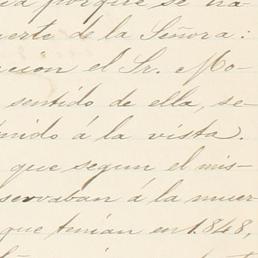 porque se ha
uerte de la Señora:
ación el Sr. Mo-
sentido de ella, se
enido á la vista.
que segun el mis-
servaban á la muer-
que tenían en 1848,